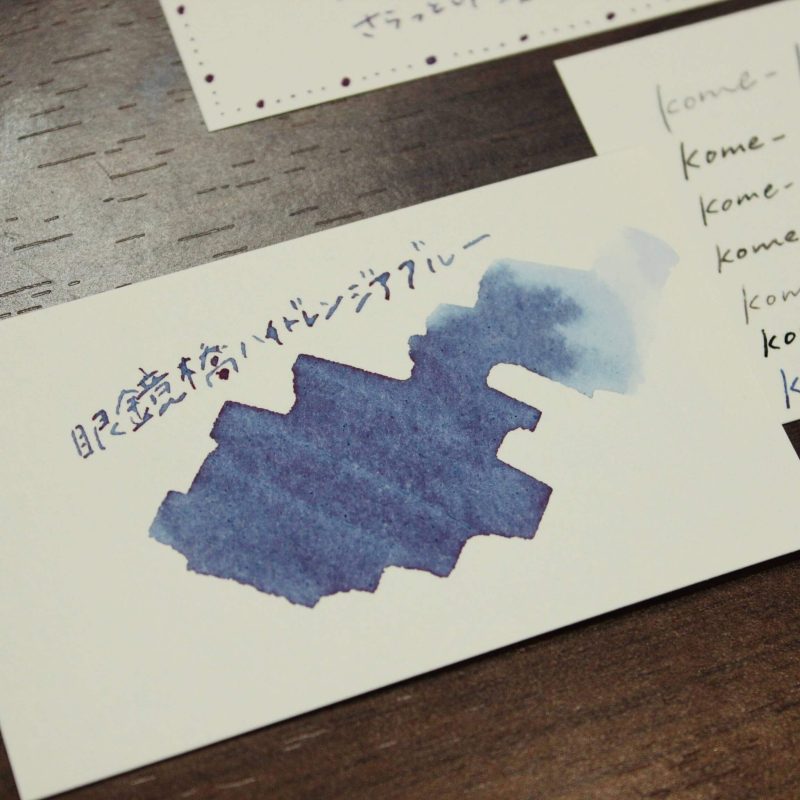 さらっと
眼鏡橋ハイドレンジアブルー
kome-
kome-
kome-
kome
kom
ko
k